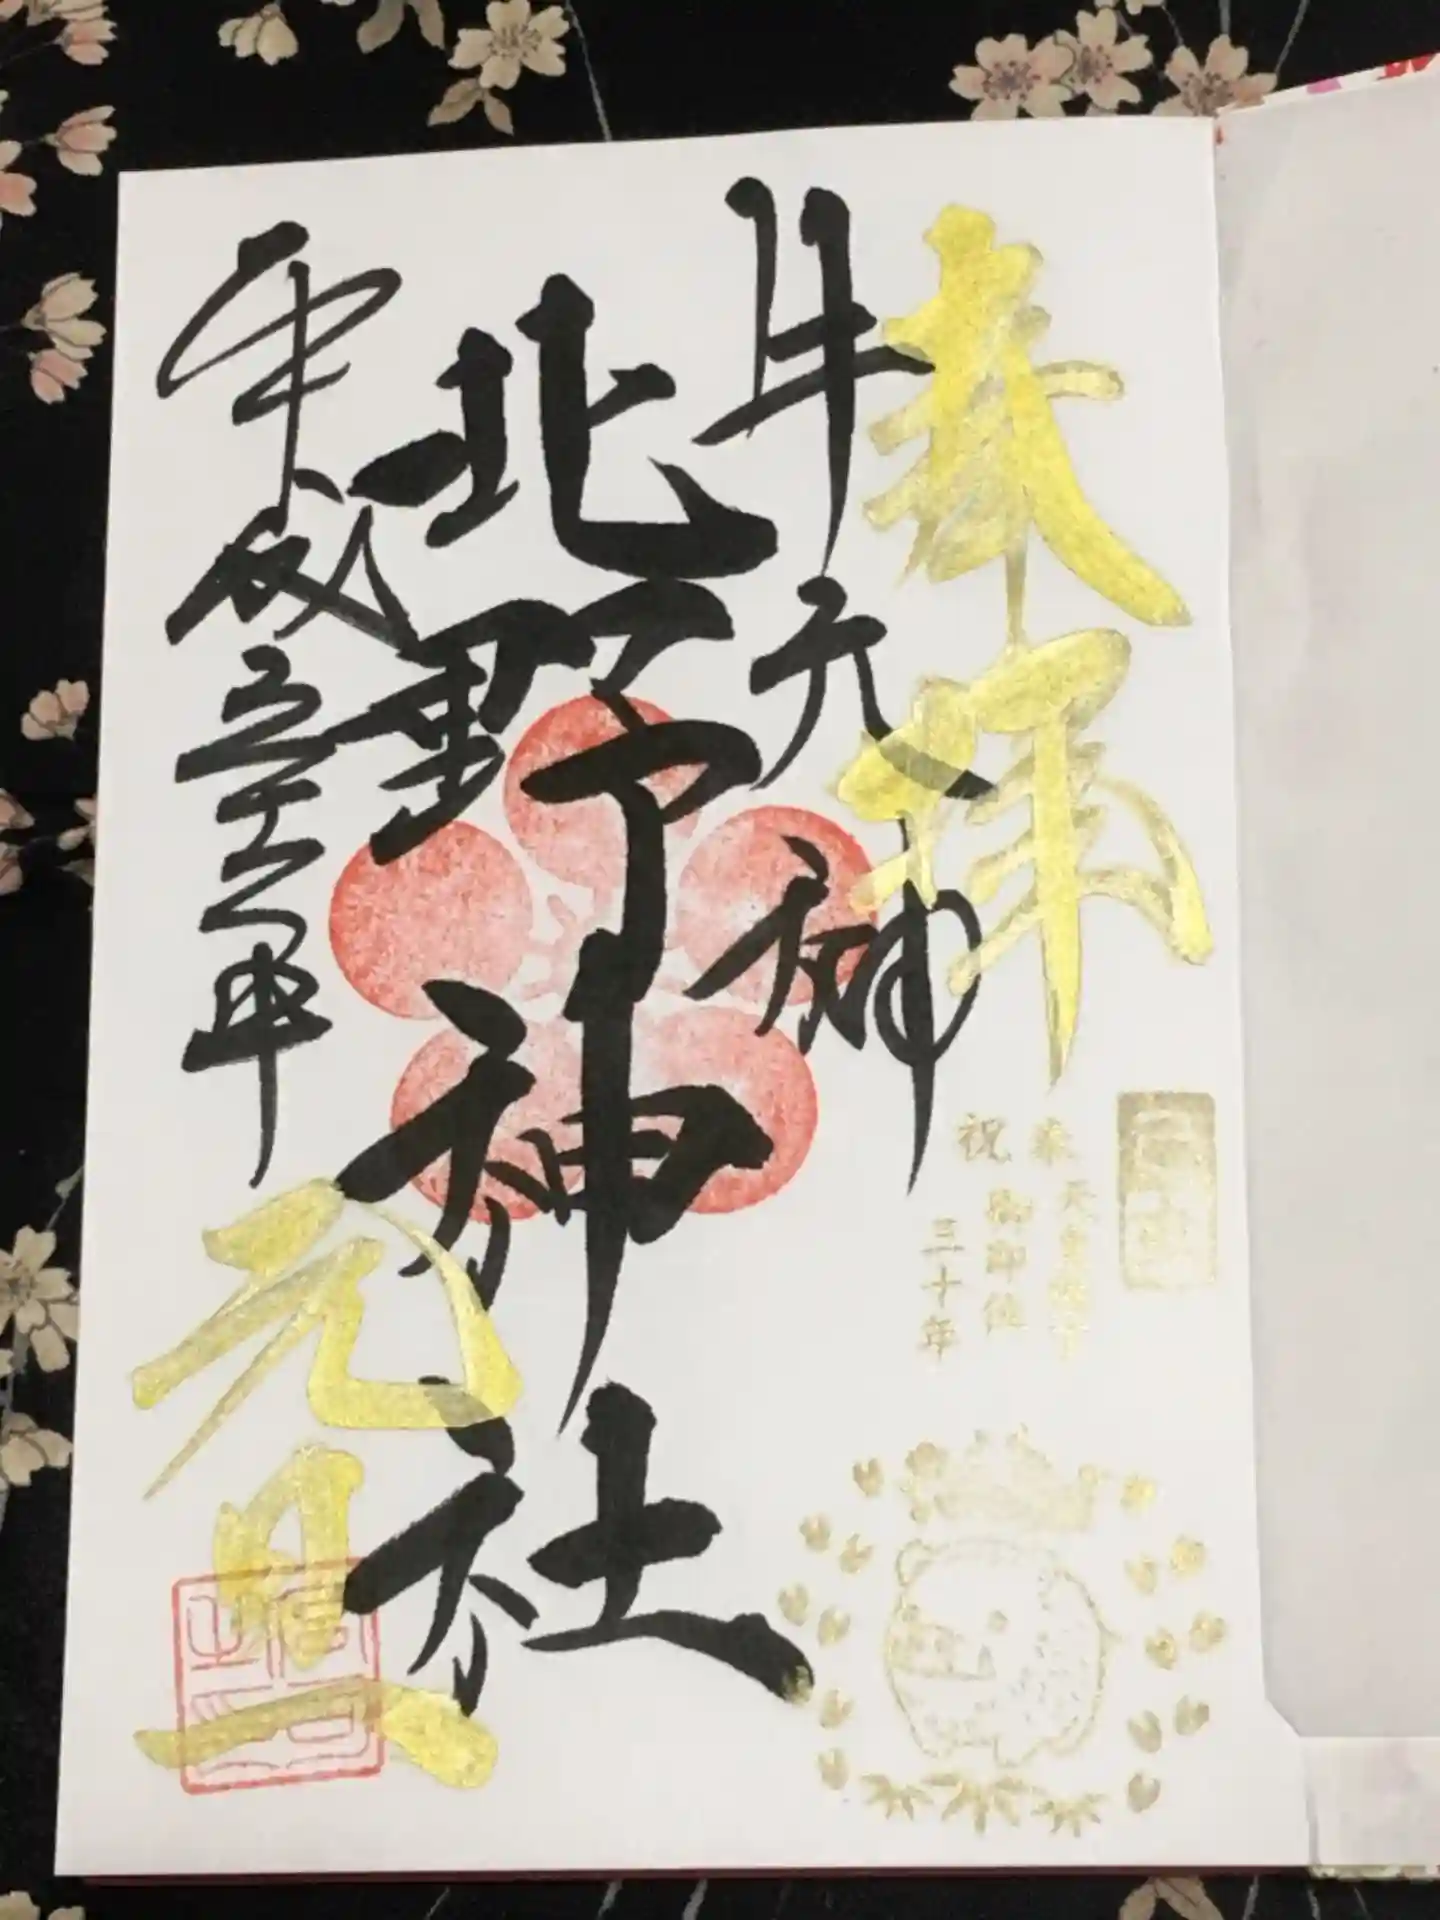 奉拝
牛天神
北野神社
平成三十一年
元旦
奉 天皇陛下
祝 御即位
三十年